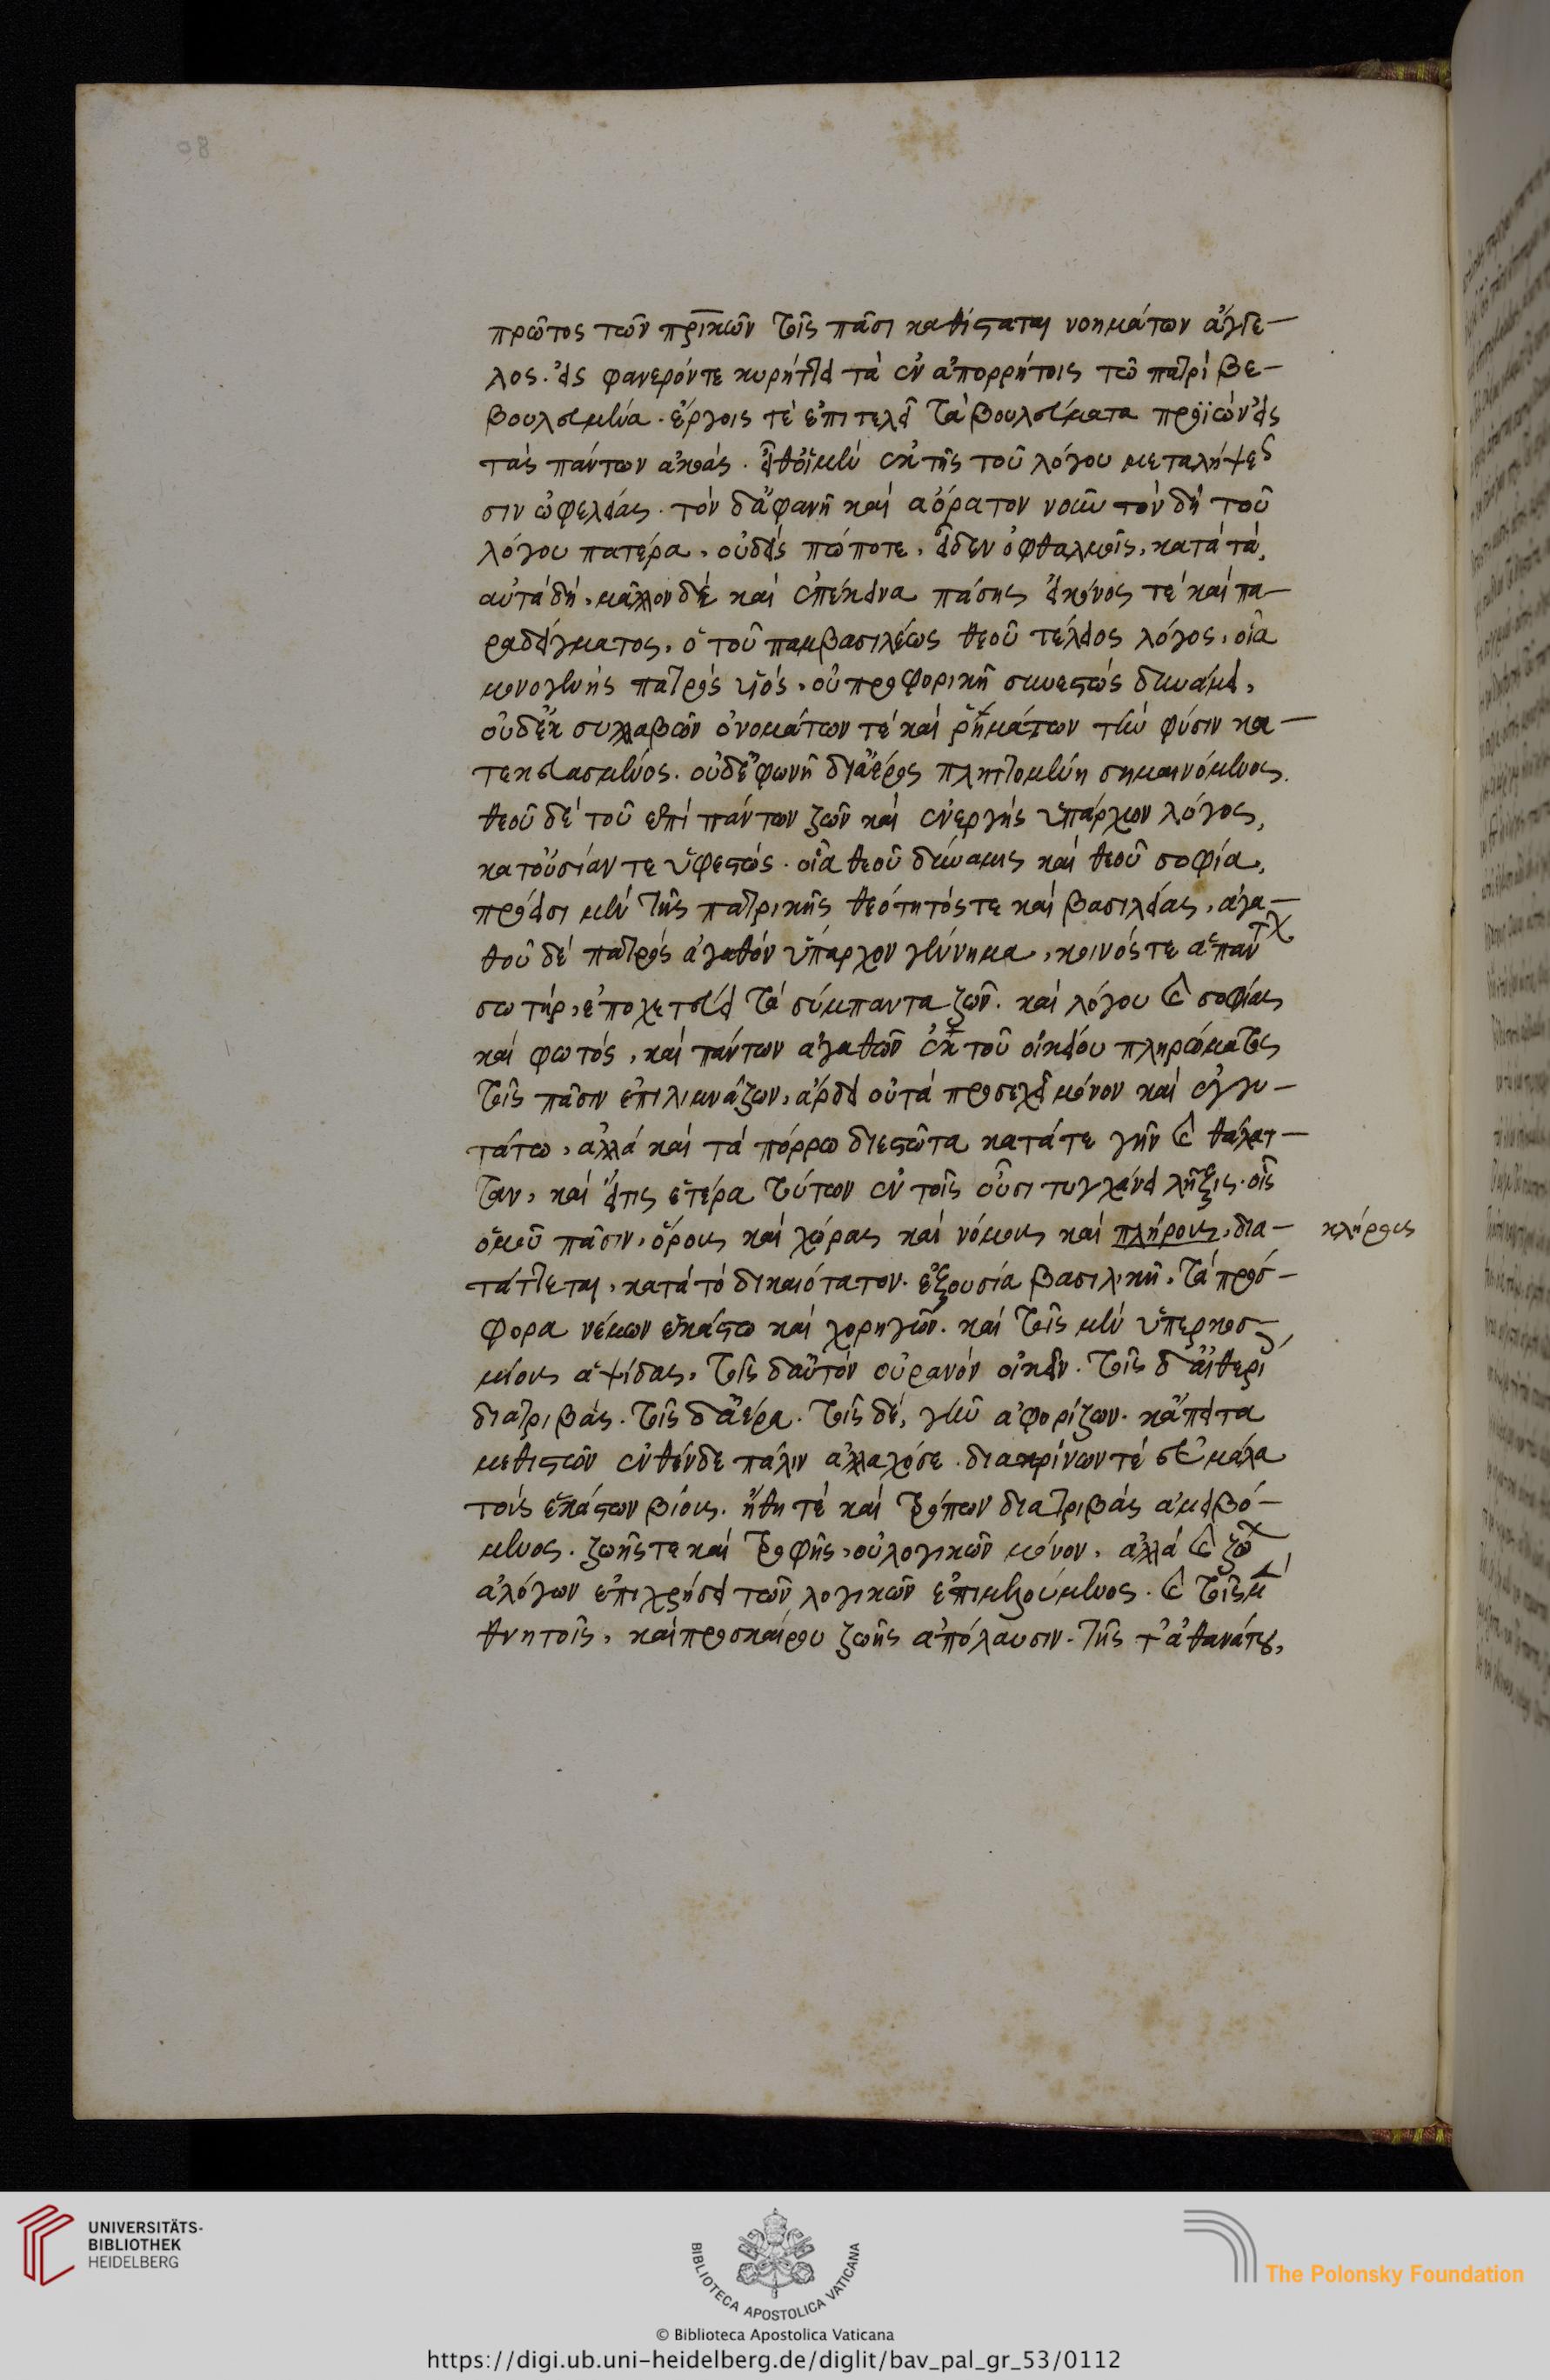 πρῶτος τῶν πρικῶν τοῖς πᾶσι καθίσταται νοημάτων ἄγγε-
λος. εἰς φανερόν τε κυρήττει τὰ ἐν ἀπορρήτοις τῶ πατρὶ βε-
βουλευμένα. ἔργοις τὲ ἐπιτελεῖ τὰ βουλεύματα προϊὼν εἰς
τὰς πάντων ἀκοάς. εἶθ οἱ μὲν ἐκ τῆς τοῦ λόγου μεταλήψε
σιν ὠφελείας. τὸν δ ἀφανῆ καὶ ἀόρατον νοῦν τὸν δὴ τοῦ
λόγου πατέρα, οὐδεὶς πώποτε, εἶδεν ὀφθαλμοῖς, κατὰ τὰ,
αὐτὰ δὴ, μᾶλλον δὲ καὶ ἐπέκεινα πάσης εἰκόνος τὲ καὶ πα-
ραδείγματος, ὁ τοῦ παμβασιλέως θεοῦ τέλειος λόγος, οἷα
μονογενὴς πατρὸς υἱός, οὐ προφορικῆ συνεστὼς δυνάμει,
οὐδ ἐκ συλλαβῶν ὀνομάτων τὲ καὶ ῥημάτων τὴν φύσιν κα-
τεσκευασμένος. οὐδὲ φωνῆ δι ἀέρος πληττομένη σημαινόμενος.
θεοῦ δὲ τοῦ ἐπὶ πάντων ζῶν καὶ ἐνεργὴς ὑπάρχων λόγος,
κατ οὐσίαν τε ὑφεστώς. οἷα θεοῦ δύναμις καὶ θεοῦ σοφία,
πρόεισι μὲν τῆς πατρικῆς θεότητός τε καὶ βασιλείας, ἀγα-
θοῦ δὲ πατρὸς ἀγαθὸν ὑπάρχον γέννημα, κοινός τε ἁπάντ
σωτήρ, ἐποχετεύει τὰ σύμπαντα ζῶν. καὶ λόγου καὶ σοφίας
καὶ φωτός, καὶ πάντων ἀγαθῶν ἐκ τοῦ οἰκείου πληρώματος
τοῖς πᾶσιν ἐπιλιμνάζων, ἄρδει οὐ τὰ προσεχῆ μόνον καὶ ἐγγυ-
τάτω, ἀλλὰ καὶ τὰ πόρρω διεστῶτα κατά τε γῆν καὶ θάλατ-
ταν, καὶ εἴτις ἑτέρα τούτων ἐν τοῖς οὖσι τυγχάνει λῆξις. οἷς
ὁμοῦ πᾶσιν, ὅρους καὶ χώρας καὶ νόμους καὶ πλήρους, δια-
κλήρους
τάττεται, κατὰ τὸ δικαιότατον. ἐξουσία βασιλικῆ, τὰ πρόσ-
φορα νέμων ἑκάστω καὶ χορηγῶν. καὶ τοῖς μὲν ὑπερκοσ
μίους ἁψίδας, τοῖς δ αὐτὸν οὐρανὸν οἰκεῖν. τοῖς δ αἰθερί
διατριβάς. τοῖς δ ἀέρα. τοῖς δέ, γῆν ἀφορίζων. κἄπειτα
μεθιστῶν ἐνθένδε πάλιν ἀλλαχόσε. διακρίνων τὲ εὖ μάλα
τοὺς ἑκάστων βίους. ἤθη τὲ καὶ τρόπων διατριβὰς ἀμειβό-
μενος. ζωῆς τε καὶ τροφῆς, οὐ λογικῶν μόνον, ἀλλὰ καὶ ζώ
ἀλόγων ἐπιχρήσει τῶν λογικῶν ἐπιμελούμενος. καὶ τοῖς μ
θνητοῖς, καὶ προσκαίρου ζωῆς ἀπόλαυσιν. τῆς τ ἀθανάτου,
08
UNIVERSITÄTS-
BIBLIOTHEK
HEIDELBERG
BIBLIOTECA APOSTOLICA VATICANA
The Polonsky Foundation
© Biblioteca Apostolica Vaticana
https://digi.ub.uni-heidelberg.de/diglit/bav_pal_gr_53/0112